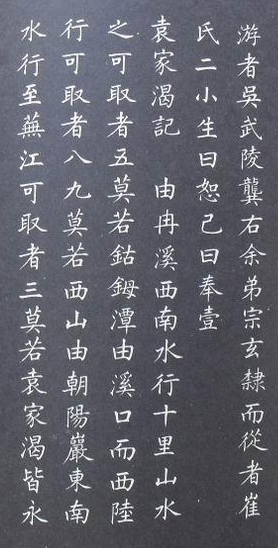 游者吳武陵龔右余弟宗玄隸而從者崔
氏二小生曰恕己曰奉壹
袁家渴記　由冉溪西南水行十里山水
之可取者五莫若鈷鉧潭由溪口而西陸
行可取者八九莫若西山由朝陽巖東南
水行至蕪江可取者三莫若袁家渴皆永